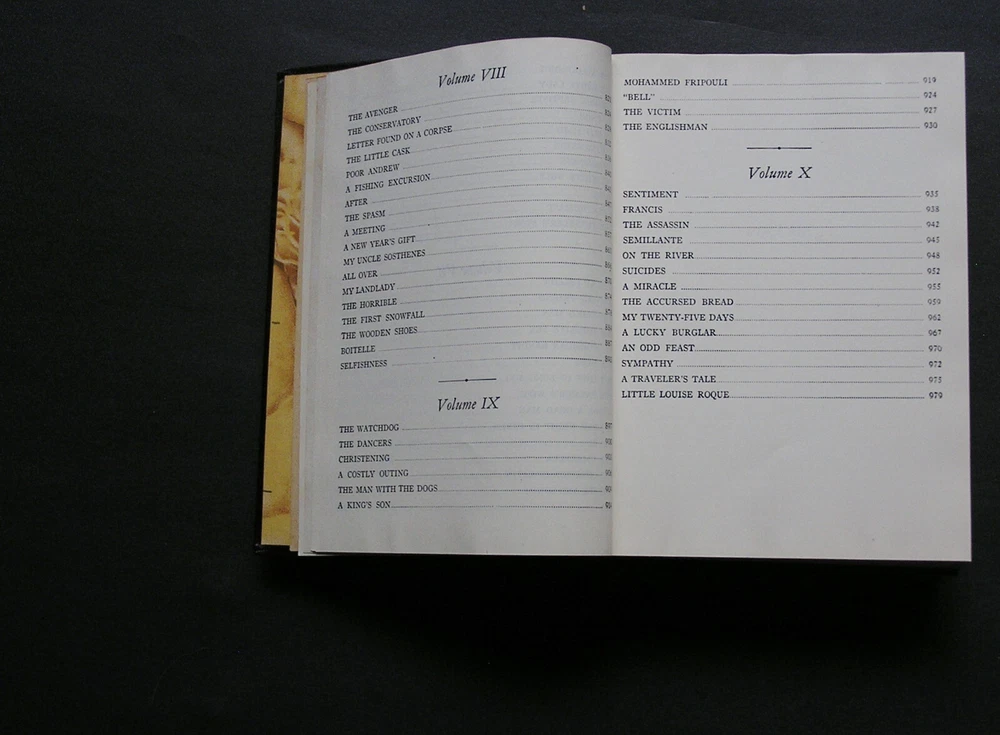 Volume VIII
THE AVENGER
THE CONSERVATORY
LETTER FOUND ON A CORPSE
THE LITTLE CASK
POOR ANDREW
A FISHING EXCURSION
AFTER
THE SPASM
A MEETING
A NEW YEAR'S GIFT
MY UNCLE SOSTHENES
ALL OVER
MY LANDLADY
THE HORRIBLE
THE FIRST SNOWFALL
THE WOODEN SHOES
BOITELLE
SELFISHNESS
Volume IX
THE WATCHDOG
THE DANCERS
CHRISTENING
A COSTLY OUTING
THE MAN WITH THE DOGS
A KING'S SON
MOHAMMED FRIPOULI 919
"BELL" 924
THE VICTIM 927
THE ENGLISHMAN 930
Volume X
SENTIMENT 935
FRANCIS 938
THE ASSASSIN 942
SEMILLANTE 945
ON THE RIVER 948
SUICIDES 952
A MIRACLE 955
THE ACCURSED BREAD 959
MY TWENTY-FIVE DAYS 962
A LUCKY BURGLAR 967
AN ODD FEAST 970
SYMPATHY 972
A TRAVELER'S TALE 975
LITTLE LOUISE ROQUE 979